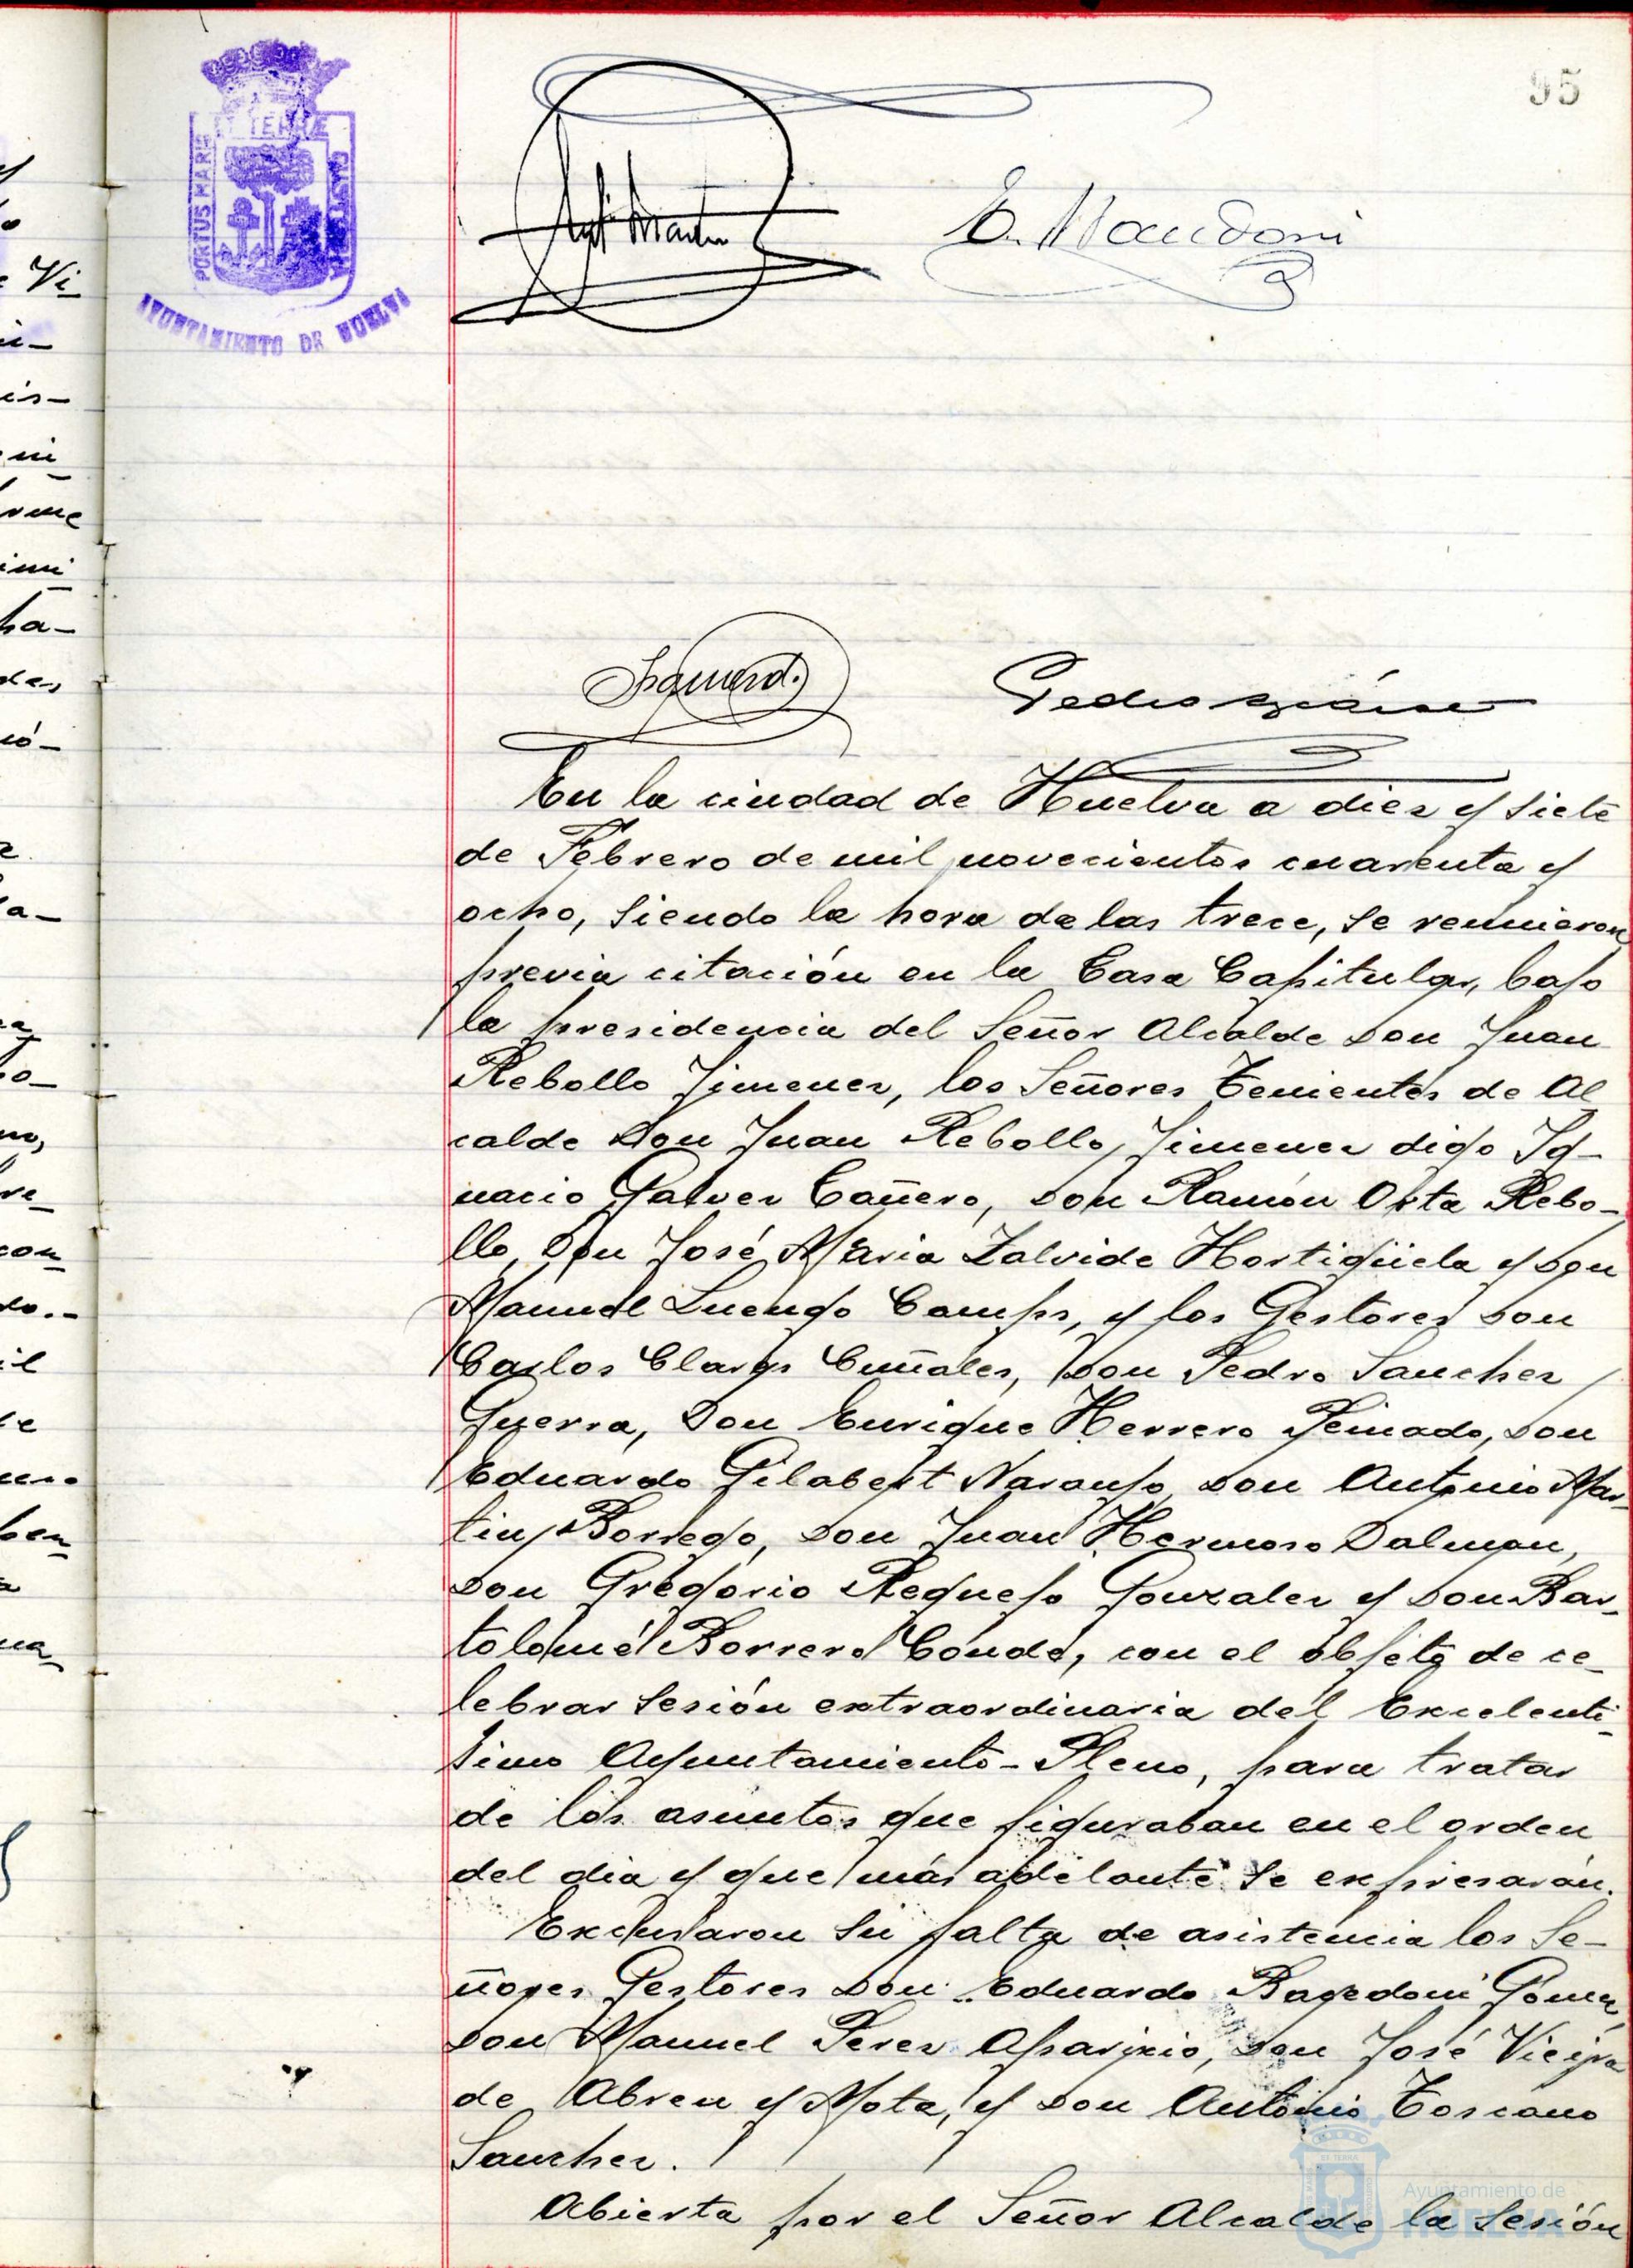 95
PORTUS MARIS ET TERRÆ CUSTODIA
AYUNTAMIENTO DE HUELVA
En la ciudad de Huelva a diez y siete
de Febrero de mil novecientos cuarenta y
ocho, siendo la hora de las trece, se reunieron
previa citación en la Casa Capitular, bajo
la presidencia del Señor Alcalde Don Juan
Rebollo Jimenez, los Señores Tenientes de Al
calde Don Juan Rebollo Jimenez digo Ig-
nacio Galvez Cañero, Don Ramón Orta Rebo-
llo, Don José Maria Zalvide Hortigüela y Don
Manuel Luengo Camps, y los Gestores Don
Carlos Clavijo Cuñales, Don Pedro Sanchez
Guerra, Don Enrique Herrero Peinado, Don
Eduardo Gilabert Naranjo, Don Antonio Mar-
tin Borrego, Don Juan Hermoso Dalman,
Don Gregorio Requejo Gonzalez y Don Bar-
tolomé Borrero Conde, con el objeto de ce-
lebrar sesión extraordinaria del Excelenti-
simo Ayuntamiento-Pleno, para tratar
de los asuntos que figuraban en el orden
del dia y que más adelante se expresarán.
Excusaron su falta de asistencia los Se-
ñores Gestores Don Eduardo Gomez,
Don Manuel Perez Aparicio, Don José Vieira
de Abreu y Mota, y Don Antonio Toscano
Sanchez.
Abierta por el Señor Alcalde la sesión
Ayuntamiento de
HUELVA